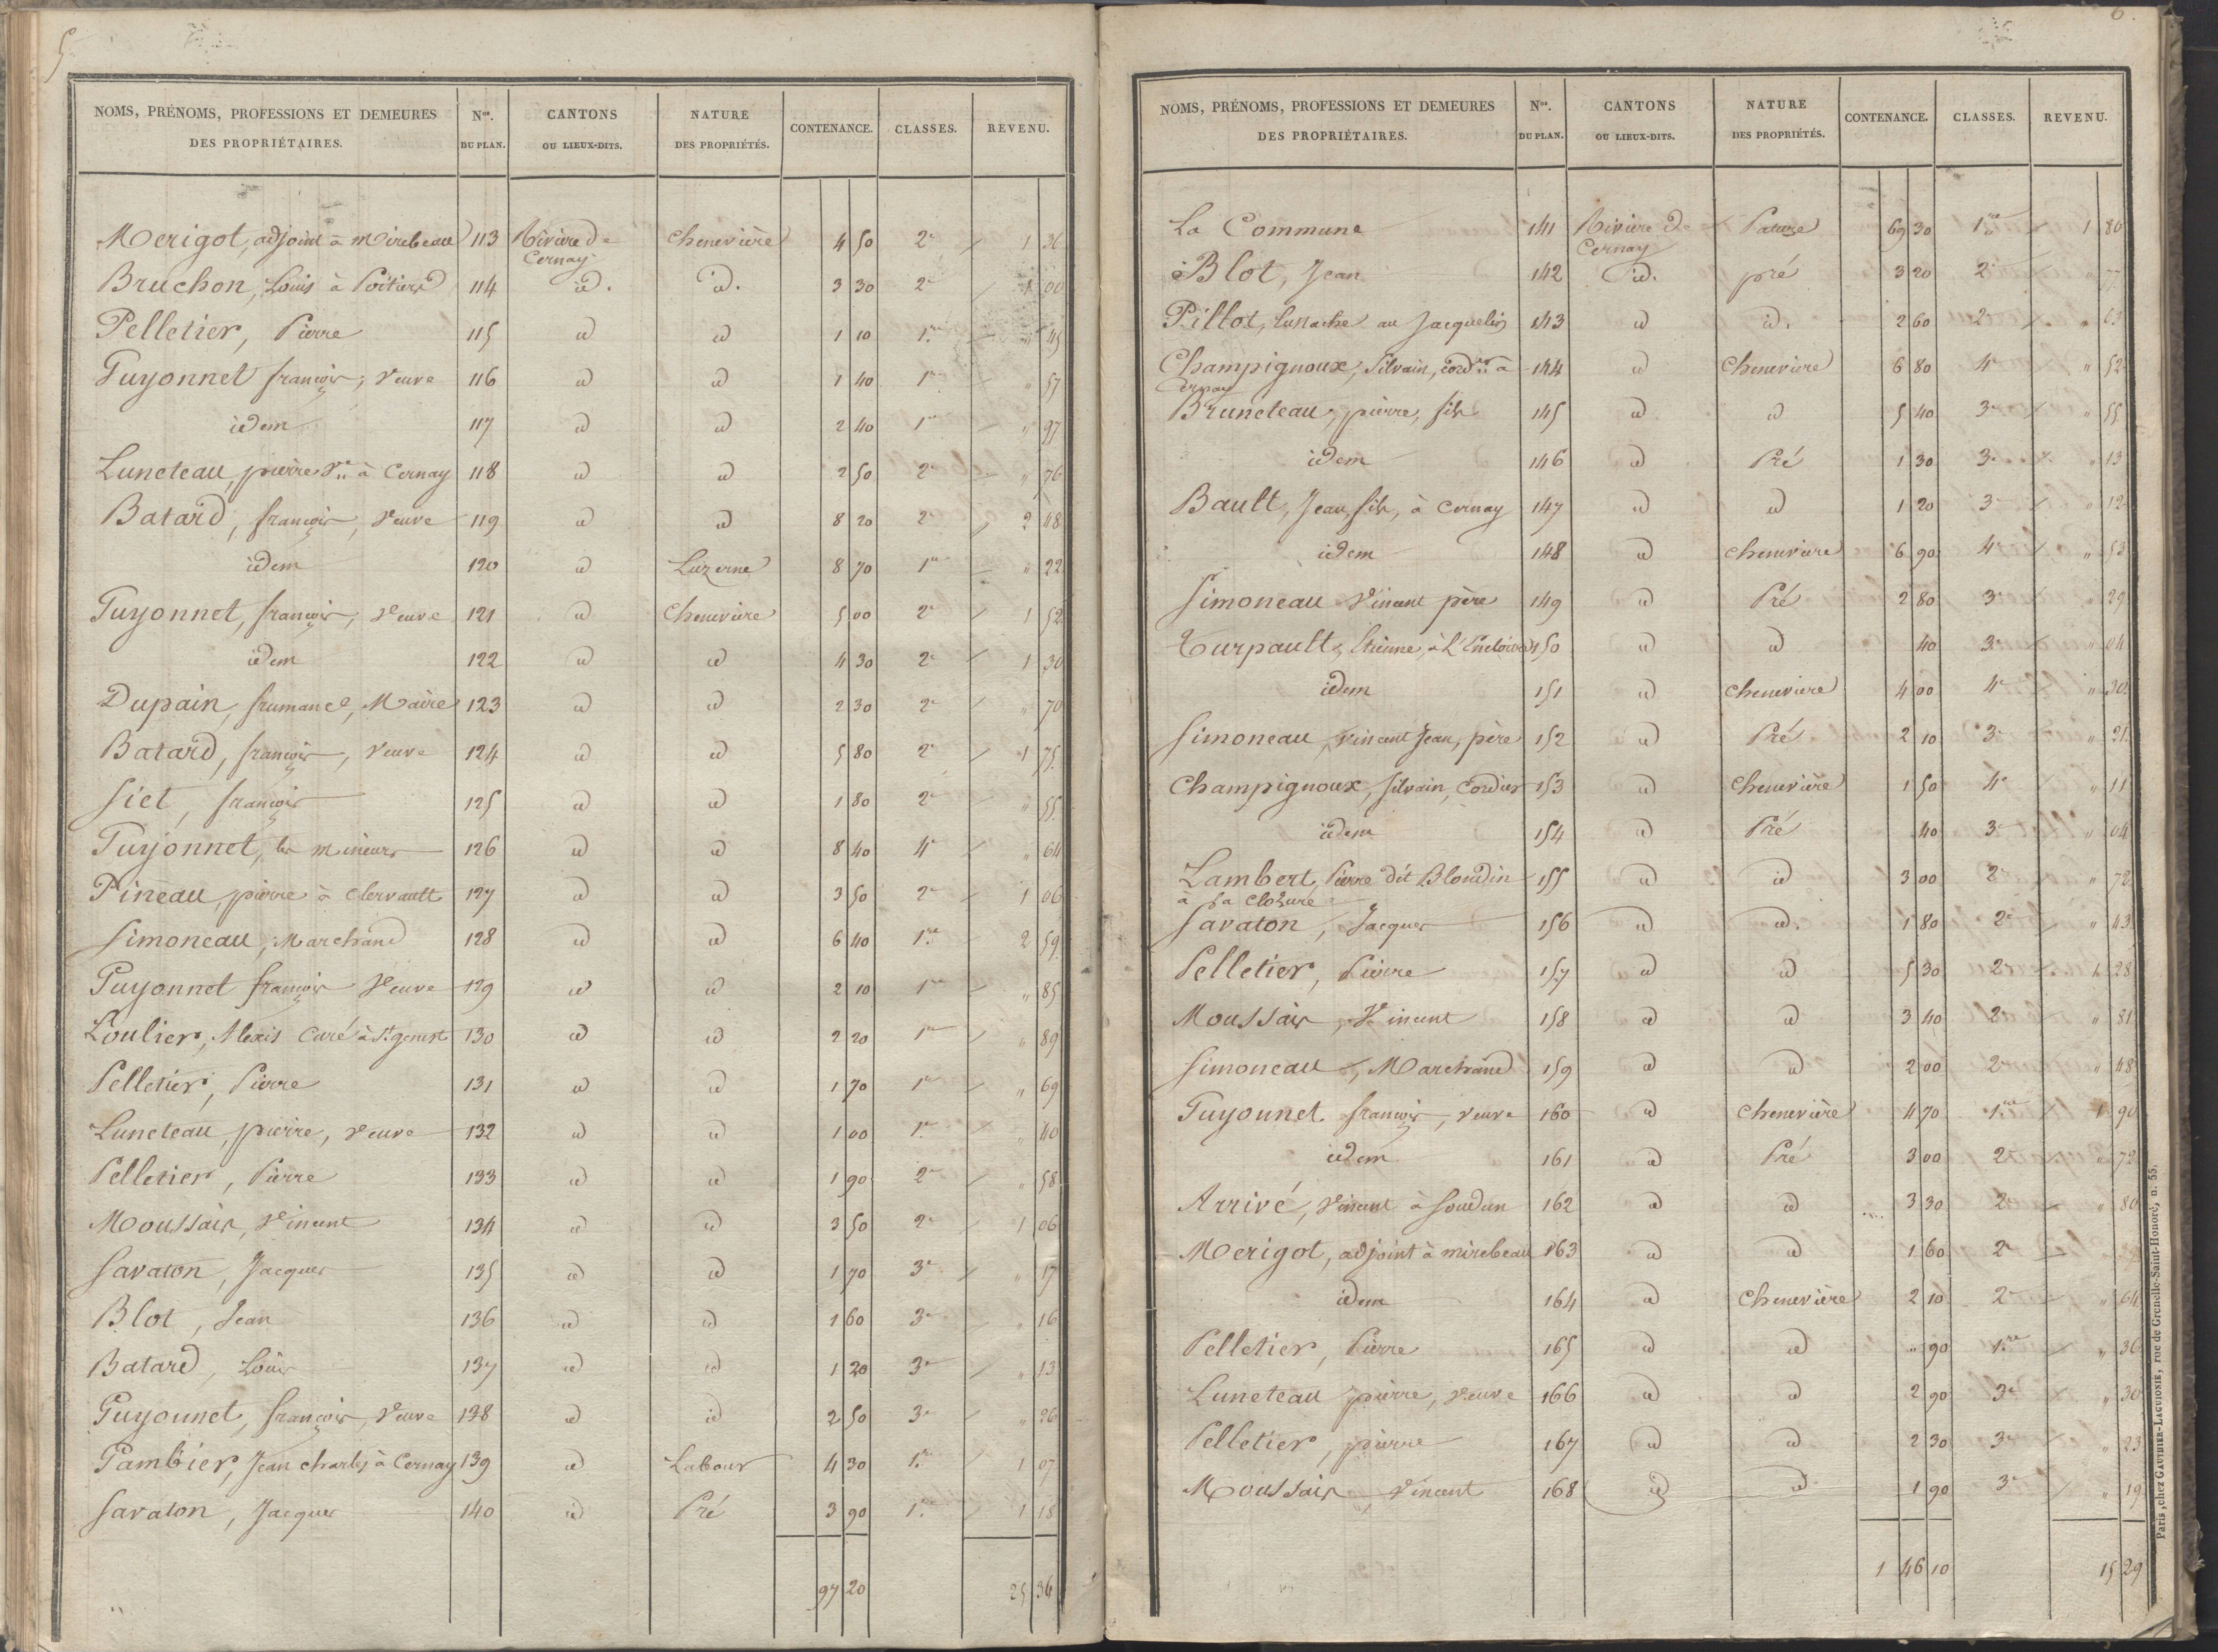 5
NOMS, PRÉNOMS, PROFESSIONS ET DEMEURES DES PROPRIÉTAIRES. Nos. DU PLAN. CANTONS OU LIEUX-DITS. NATURE DES PROPRIÉTÉS. CONTENANCE. CLASSES. REVENU.
Merigot, adjoint à Mirebeau 113 Rivière de Cernay chenevière 4 50 2e 1 36
Bruchon, Louis à Poitiers 114 id. id. 3 30 2e 1 00
Pelletier, Pierre 115 id id 1 10 1re " 45
Puyonnet françois, Veuve 116 id id 1 40 1re " 57
idem 117 id id 2 40 1re " 97
Luneteau, pierre Ve à Cernay 118 id id 2 50 2e " 76
Batard, françois, Veuve 119 id id 8 20 2e 2 48
idem 120 id Luzerne 8 70 1re " 22
Puyonnet, françois, Veuve 121 id chenevière 5 00 2e 1 52
idem 122 id id 4 30 2e 1 30
Dupain, frumance, Maire 123 id id 2 30 2e " 70
Batard, françois, Veuve 124 id id 5 80 2e 1 75
Siet, françois 125 id id 1 80 2e " 55
Puyonnet, les mineurs 126 id id 8 40 4e " 64
Pineau, pierre à Clervault 127 id id 3 50 2e 1 06
Simoneau, Marchand 128 id id 6 40 1re 2 59
Puyonnet françois Veuve 129 id id 2 10 1re " 85
Loulier, Alexis Curé à St genest 130 id id 2 20 1re " 89
Pelletier, Pierre 131 id id 1 70 1re " 69
Luneteau, pierre, Veuve 132 id id 1 00 1re " 40
Pelletier, Pierre 133 id id 1 90 2e " 58
Moussais, Vincent 134 id id 3 50 2e 1 06
Savaton, Jacques 135 id id 1 70 3e " 17
Blot, Jean 136 id id 1 60 3e " 16
Batard, Louis 137 id id 1 20 3e " 13
Puyonnet, françois, Veuve 138 id id 2 50 3e " 26
Pambier, Jean charles à Cernay 139 id Labour 4 30 1re 1 07
Savaton, Jacques 140 id Pré 3 90 1re 1 18
97 20 25 36
6.
NOMS, PRÉNOMS, PROFESSIONS ET DEMEURES DES PROPRIÉTAIRES. Nos. DU PLAN. CANTONS OU LIEUX-DITS. NATURE DES PROPRIÉTÉS. CONTENANCE. CLASSES. REVENU.
La Commune 141 Rivière de Cernay Pature 69 30 1re 1 80
Blot, Jean 142 id. pré 3 20 2e " 77
Pillot, Eustache au Jacquelin 143 id id. 2 60 2e " 63
Champignoux, Silvain, cordier à Cernay 144 id Chenevière 6 80 4e " 52
Bruneteau, pierre, fils 145 id id 5 40 3e " 55
idem 146 id Pré 1 30 3e " 13
Bault, Jean, fils, à Cernay 147 id id 1 20 3e " 12
idem 148 id chenevière 6 90 4e " 53
Simoneau Vincent père 149 id Pré 2 80 3e " 29
Turpault, Etienne, à 150 id id 40 3e " 04
idem 151 id chenevière 4 00 4e " 30
Simoneau, Vincent Jean, père 152 id Pré 2 10 3e " 21
Champignoux, Silvain, Cordier 153 id Chenevière 1 50 4e " 11
idem 154 id Pré 40 3e " 04
Lambert, Pierre dit Blondin à La Cloture 155 id id 3 00 2e " 72
Savaton, Jacques 156 id id. 1 80 2e " 43
Pelletier, Pierre 157 id id 5 30 2e 1 28
Moussais, Vincent 158 id id 3 40 2e " 81
Simoneau, Marchand 159 id id 2 00 2e " 48
Puyonnet françois, veuve 160 id chenevière 4 70 1re 1 90
idem 161 id Pré 3 00 2e " 72
Arrivé, Vincent à Soudun 162 id id 3 30 2e " 80
Merigot, adjoint à mirebeau 163 id id 1 60 2e
idem 164 id Chenevière 2 10 2e " 64
Pelletier, Pierre 165 id id " 90 1re " 36
Luneteau pierre, Veuve 166 id id 2 90 3e " 30
Pelletier, pierre 167 id id 2 30 3e " 23
Moussais, Vincent 168 id id 1 90 3e " 19
1 46 10 15 29
Paris, chez GAUTHIER-LAGUIONIE, rue de Grenelle-Saint-Honoré, n. 55.